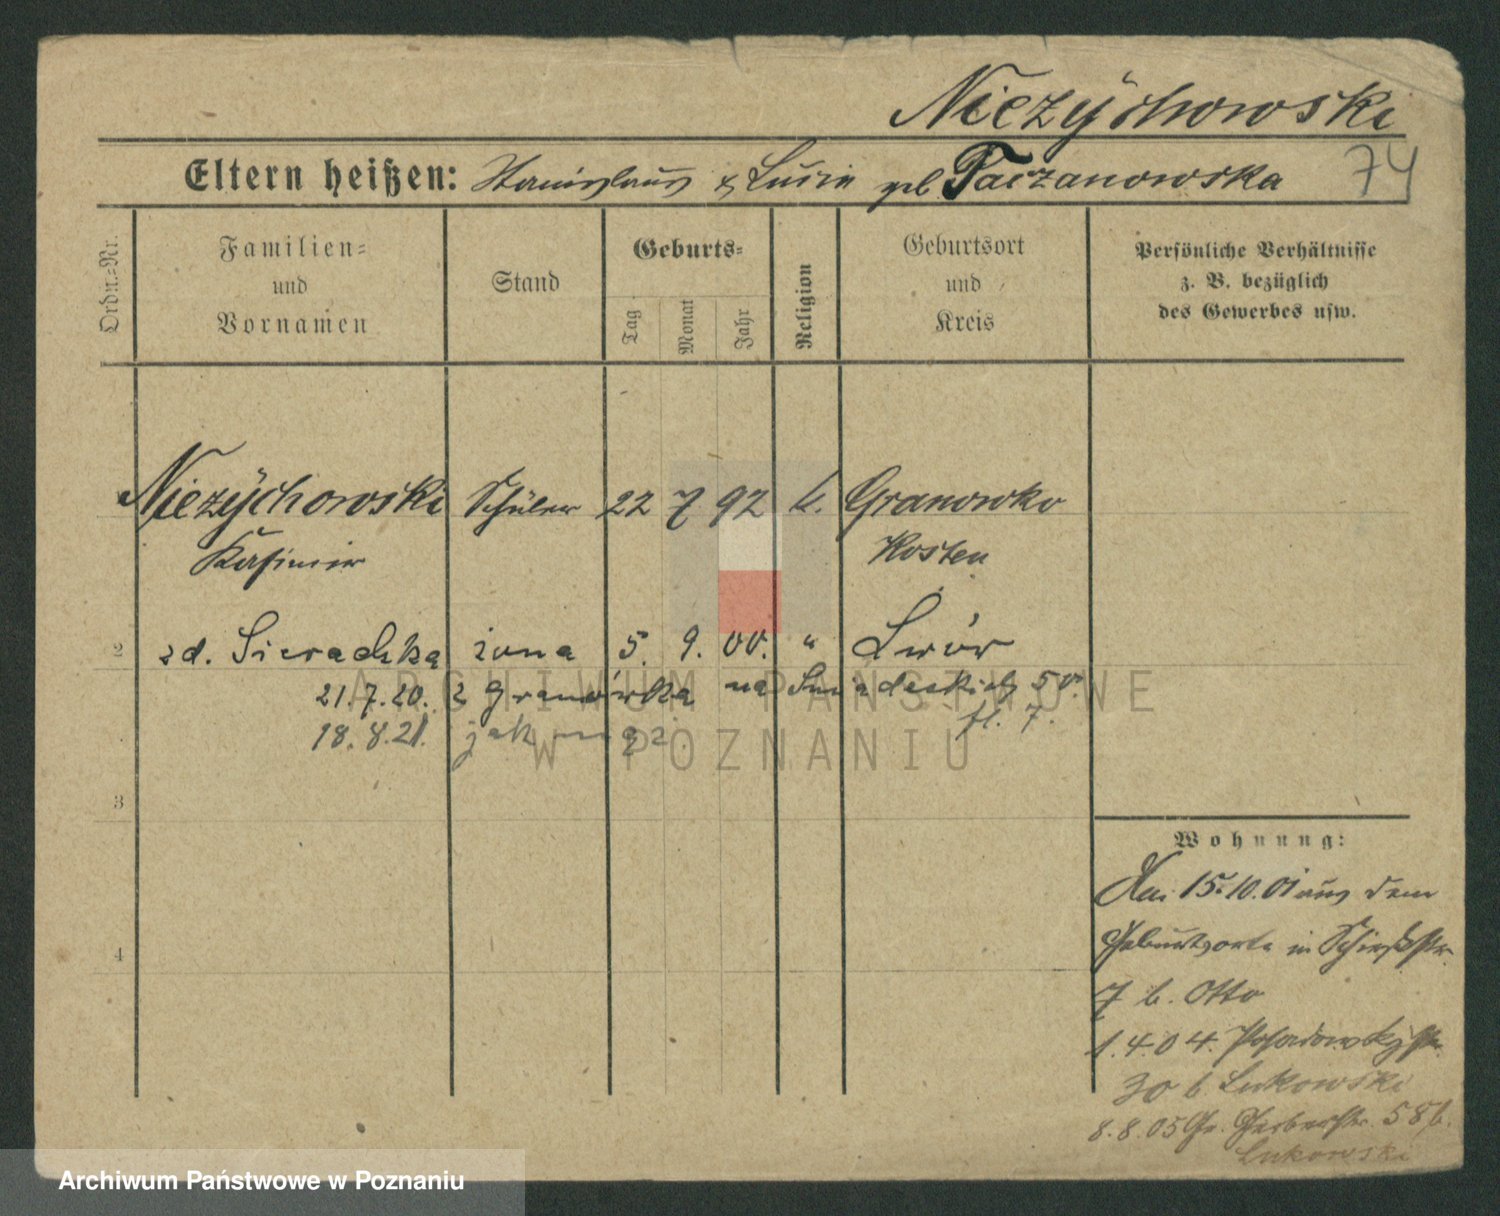 Nieżychowski
Eltern heißen: Stanislaus & Lucie geb. Taczanowska
74
Ordn.=Nr.
Familien=
und
Vornamen
Stand
Geburts=
Tag
Monat
Jahr
Religion
Geburtsort
und
Kreis
Persönliche Verhältnisse
z. B. bezüglich
des Gewerbes usw.
Niezychowski Schüler 22 7 92 k. Granowko
Kasimir Kosten
2 zd. Sieradzka żona 5. 9. 00. " Lwów
21.7.20. z Granówka na Śniadeckich 50.
18.8.21. jak mąż. fl. 7.
3
4
Wohnung:
15.10.01 aus dem
Geburtsorte in Schießstr.
7 b. Otto
1.4.04. Posadowskystr.
30 b Lukowski
8.8.05 Gr. Gerberstr. 58 b.
Lukowski
ARCHIWUM PAŃSTWOWE
W POZNANIU
Archiwum Państwowe w Poznaniu